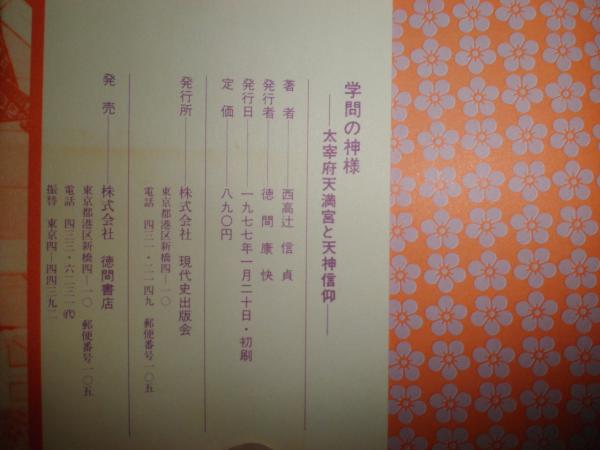 学問の神様
――太宰府天満宮と天神信仰――
著者――西高辻信貞
発行者――徳間康快
発行日――一九七七年一月二十日・初刷
定価――八九〇円
発行所――株式会社 現代史出版会
東京都港区新橋四―一〇
電話 四三一・二一四九 郵便番号一〇五
発売――株式会社 徳間書店
東京都港区新橋四―一〇 郵便番号一〇五
電話 四三三・六二三一㈹
振替 東京四―四四三九二